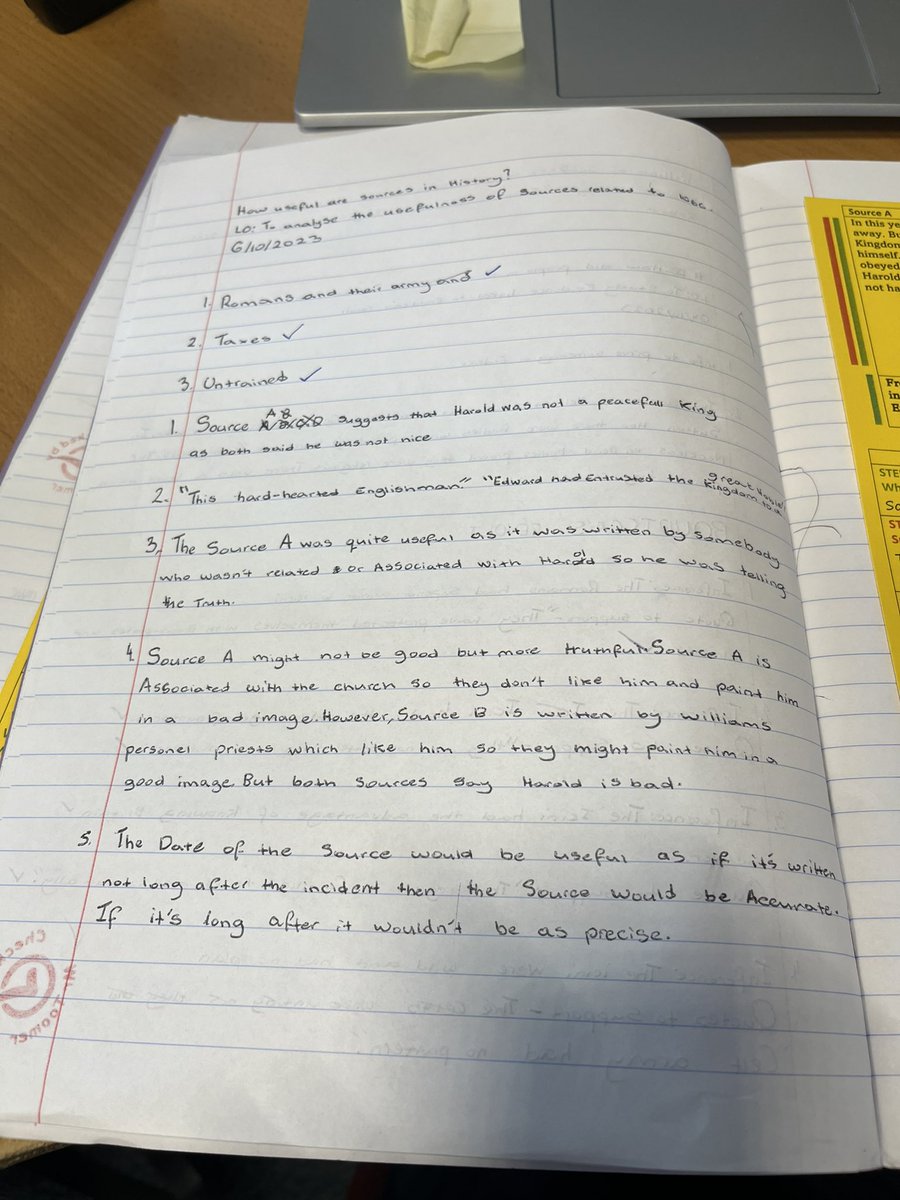 How useful are sources in History?
LO: To analyse the usefulness of sources related to 1066.
6/10/2023
1. Romans and their army and
2. Taxes
3. Untrained
1. Source A B suggests that Harold was not a peacefull King
as both said he was not nice
2. "This hard-hearted Englishman." "Edward had Entrusted the Kingdom to a
great Noble"
3. The Source A was quite useful as it was written by somebody
who wasn't related or Associated with Harold so he was telling
the Truth.
4. Source A might not be good but more truthful. Source A is
Associated with the church so they don't like him and paint him
in a bad image. However, Source B is written by Williams
personel priests which like him so they might paint him in a
good image. But both sources say Harold is bad.
5. The Date of the Source would be useful as if it's written
not long after the incident then the Source would be Accurate.
If it's long after it wouldn't be as precise.
Source A
In this ye
away. Bu
Kingdon
himself.
obeyed
Harold
not ha
Fr
in
E
STE
Wh
So
ST
S